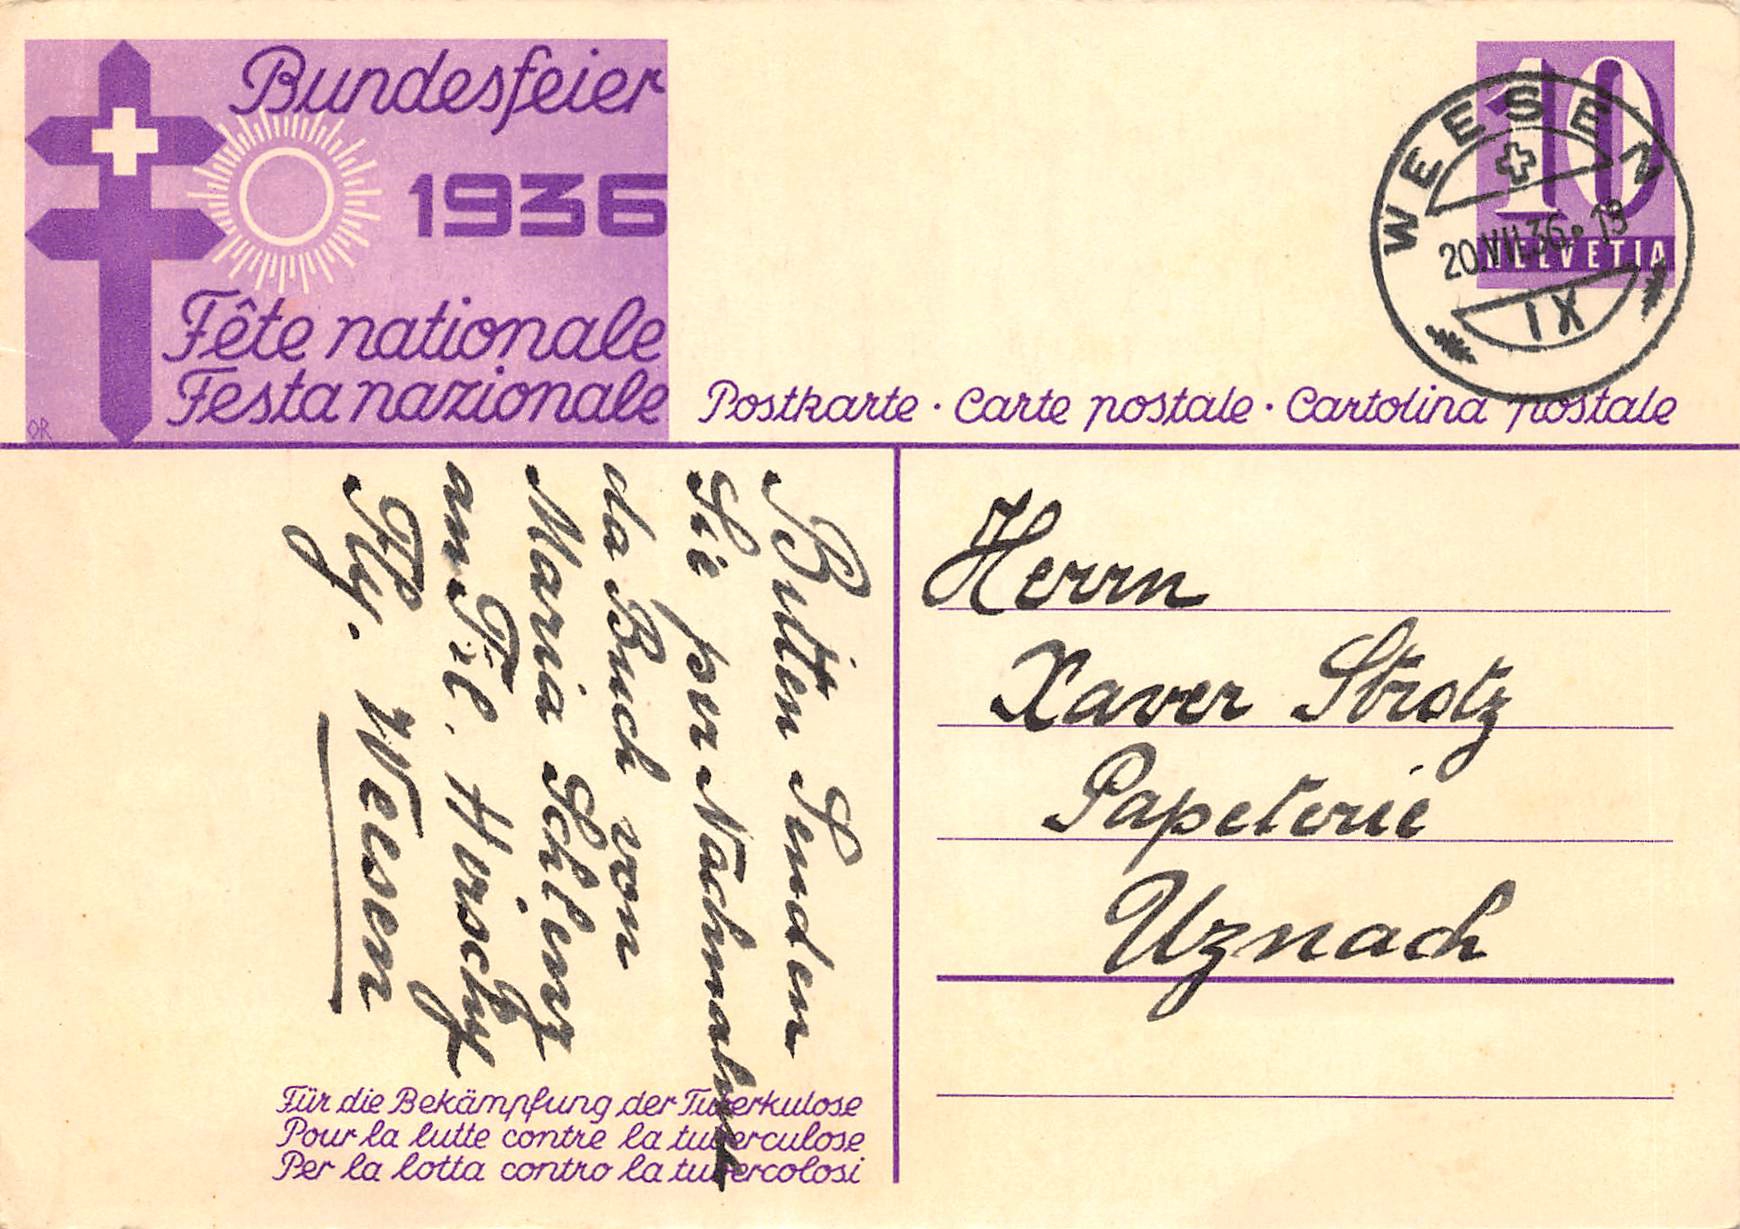 Bundesfeier
1936
Fête nationale
Festa nazionale
OR
10
HELVETIA
WEESEN
20.VII.36. 19
IX
Postkarte · Carte postale · Cartolina postale
Bitten Senden
Sie per Nachnahme
da Buch von
Maria
an Frl.
Fly. Weesen
Herrn
Xaver Strotz
Papeterie
Uznach
Für die Bekämpfung der Tuberkulose
Pour la lutte contre la tuberculose
Per la lotta contro la tubercolosi